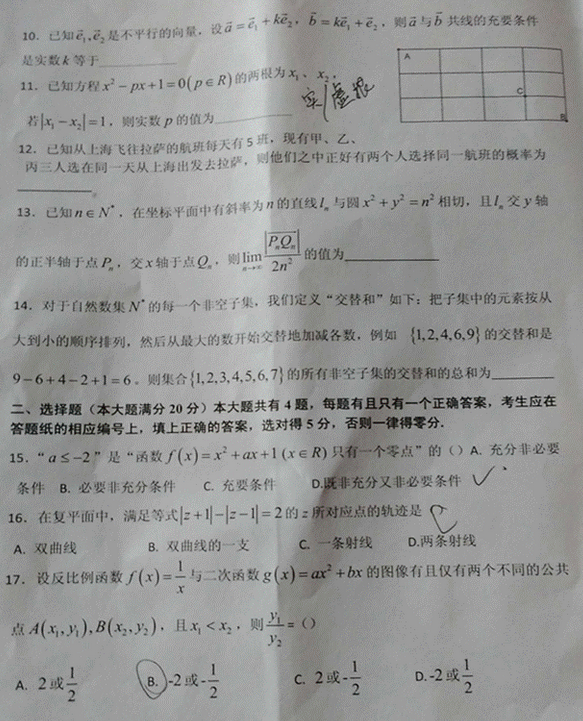 10. 已知 $\vec{e}_1,\vec{e}_2$ 是不平行的向量，设 $\vec{a}=\vec{e}_1+k\vec{e}_2$，$\vec{b}=k\vec{e}_1+\vec{e}_2$，则 $\vec{a}$ 与 $\vec{b}$ 共线的充要条件
是实数 $k$ 等于____
11. 已知方程 $x^2-px+1=0(p\in R)$ 的两根为 $x_1$、$x_2$，
A
C
B
实/虚根
若 $|x_1-x_2|=1$，则实数 $p$ 的值为____
12. 已知从上海飞往拉萨的航班每天有 5 班，现有甲、乙、
丙三人选在同一天从上海出发去拉萨，则他们之中正好有两个人选择同一航班的概率为
____。
13. 已知 $n\in N^*$，在坐标平面中有斜率为 $n$ 的直线 $l_n$ 与圆 $x^2+y^2=n^2$ 相切，且 $l_n$ 交 $y$ 轴
的正半轴于点 $P_n$，交 $x$ 轴于点 $Q_n$，则 $\lim_{n\to\infty}\frac{|P_nQ_n|}{2n^2}$ 的值为____
14. 对于自然数集 $N^*$ 的每一个非空子集，我们定义“交替和”如下：把子集中的元素按从
大到小的顺序排列，然后从最大的数开始交替地加减各数，例如 $\{1,2,4,6,9\}$ 的交替和是
$9-6+4-2+1=6$。则集合 $\{1,2,3,4,5,6,7\}$ 的所有非空子集的交替和的总和为____
二、选择题（本大题满分 20 分）本大题共有 4 题，每题有且只有一个正确答案，考生应在
答题纸的相应编号上，填上正确的答案，选对得 5 分，否则一律得零分.
15. “$a\le-2$”是“函数 $f(x)=x^2+ax+1\,(x\in R)$ 只有一个零点”的（）A. 充分非必要
条件 B. 必要非充分条件 C. 充要条件 D.既非充分又非必要条件 ✓
16. 在复平面中，满足等式 $|z+1|-|z-1|=2$ 的 $z$ 所对应点的轨迹是
A. 双曲线 B. 双曲线的一支 C. 一条射线 D.两条射线
17. 设反比例函数 $f(x)=\frac{1}{x}$ 与二次函数 $g(x)=ax^2+bx$ 的图像有且仅有两个不同的公共
点 $A(x_1,y_1),B(x_2,y_2)$，且 $x_1<x_2$，则 $\frac{y_1}{y_2}=$（）
A. 2 或 $\frac{1}{2}$ B. -2 或 -$\frac{1}{2}$ C. 2 或 -$\frac{1}{2}$ D. -2 或 $\frac{1}{2}$